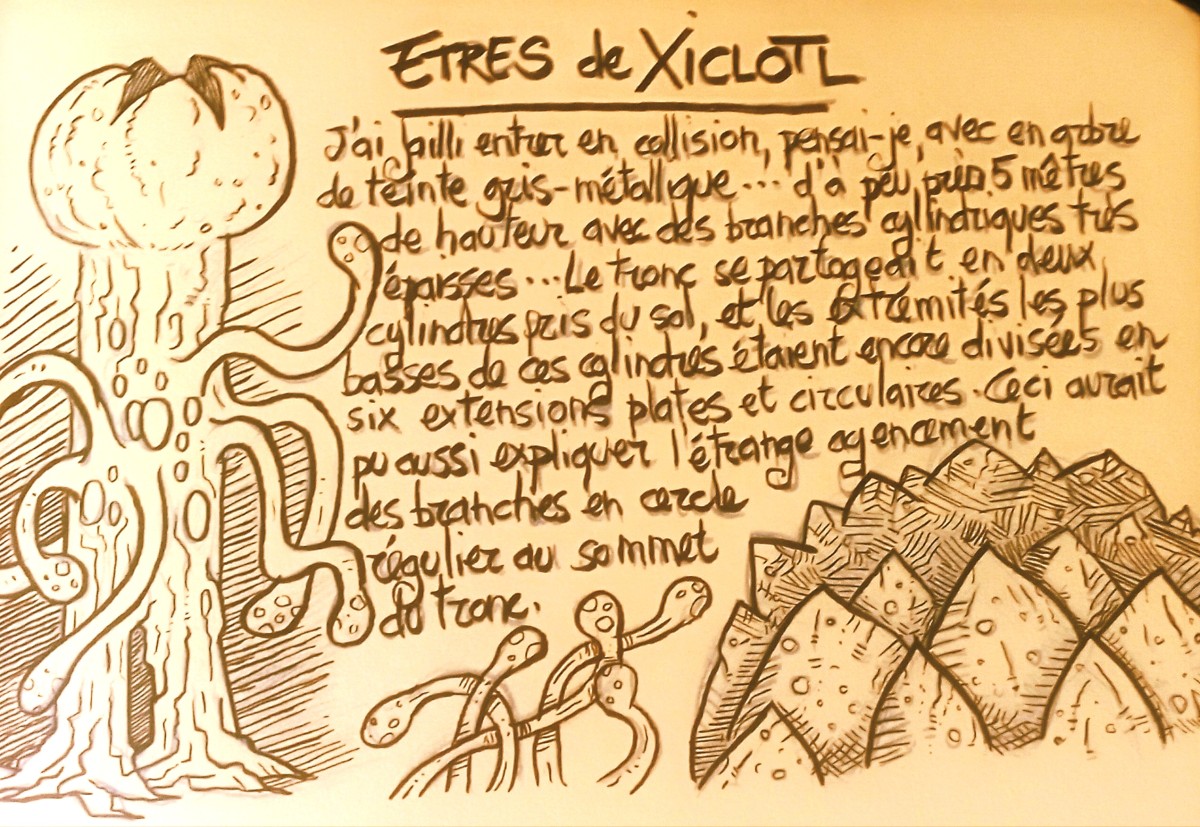 ETRES de XICLOTL
J'ai failli entrer en collision, pensai-je, avec en arbre
de teinte gris-métallique... d'à peu près 5 mêtres
de hauteur avec des branches cylindriques très
épaisses... Le tronc se partageait en deux
cylindres près du sol, et les extrémités les plus
basses de ces cylindres étaient encore divisées en
six extensions plates et circulaires. Ceci aurait
pu aussi expliquer l'étrange agencement
des branches en cercle
régulier au sommet
du tronc.